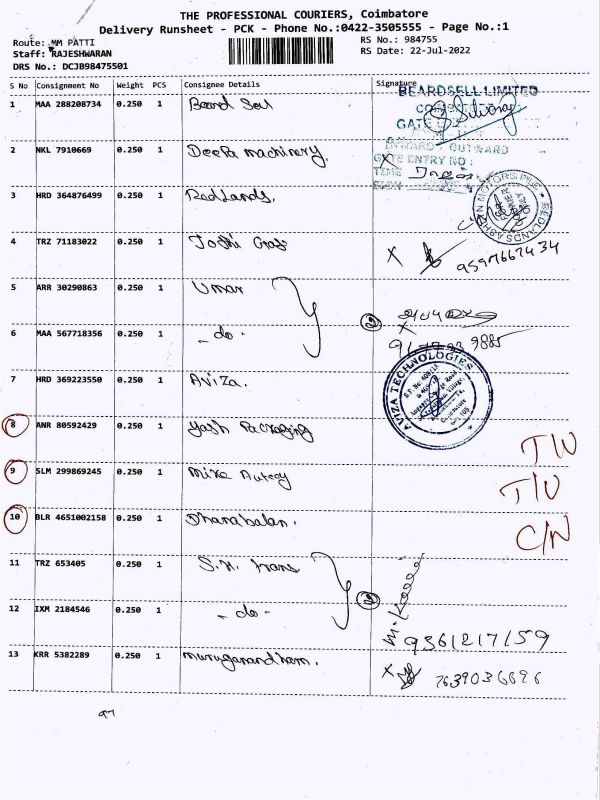 THE PROFESSIONAL COURIERS, Coimbatore
Delivery Runsheet - PCK - Phone No.:0422-3505555 - Page No.:1
Route: MM PATTI
RS No.: 984755
Staff: RAJESHWARAN
RS Date: 22-Jul-2022
DRS No.: DCJB98475501
S No Consignment No Weight PCS Consignee Details Signature
1 MAA 288208734 0.250 1
BEARDSELL LIMITED
GATE
2 NKL 7910669 0.250 1 Deepa machinery.
INWARD / OUTWARD
GATE ENTRY NO :
TIME
SIGN
3 HRD 364876499 0.250 1 Redlands.
REDLANDS ASHLYN MOTORS PLC
4 TRZ 71183022 0.250 1 Joshi
X 9597667434
5 ARR 30290863 0.250 1 Umar
2
6 MAA 567718356 0.250 1 - do -
X
7 HRD 369223550 0.250 1 Aviza.
AVIZA TECHNOLOGIES
8 ANR 80592429 0.250 1 Yash Packaging
9 SLM 299869245 0.250 1
10 BLR 4651002158 0.250 1 Dhanabalan.
C/N
11 TRZ 653405 0.250 1 S.N. trans
2
12 IXM 2184546 0.250 1 - do -
9361217159
13 KRR 5382289 0.250 1 muruganandham.
X 7639036696